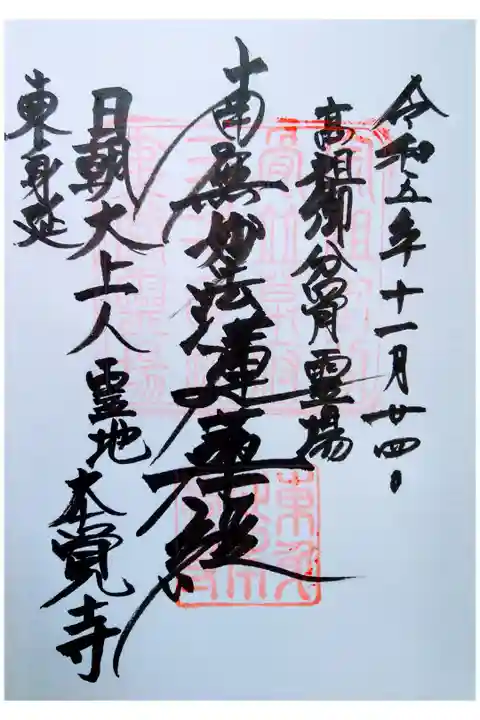 令和五年十一月廿四日
高祖御分骨霊場
南無妙法蓮華経
日朝大上人霊地本覚寺
東身延